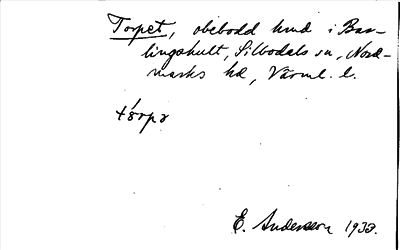 Torpet, obebodd lund i Bas-
lingshult, Silbodals sn, Nord-
marks hd, Värml. l.
E. Andersson 1933.